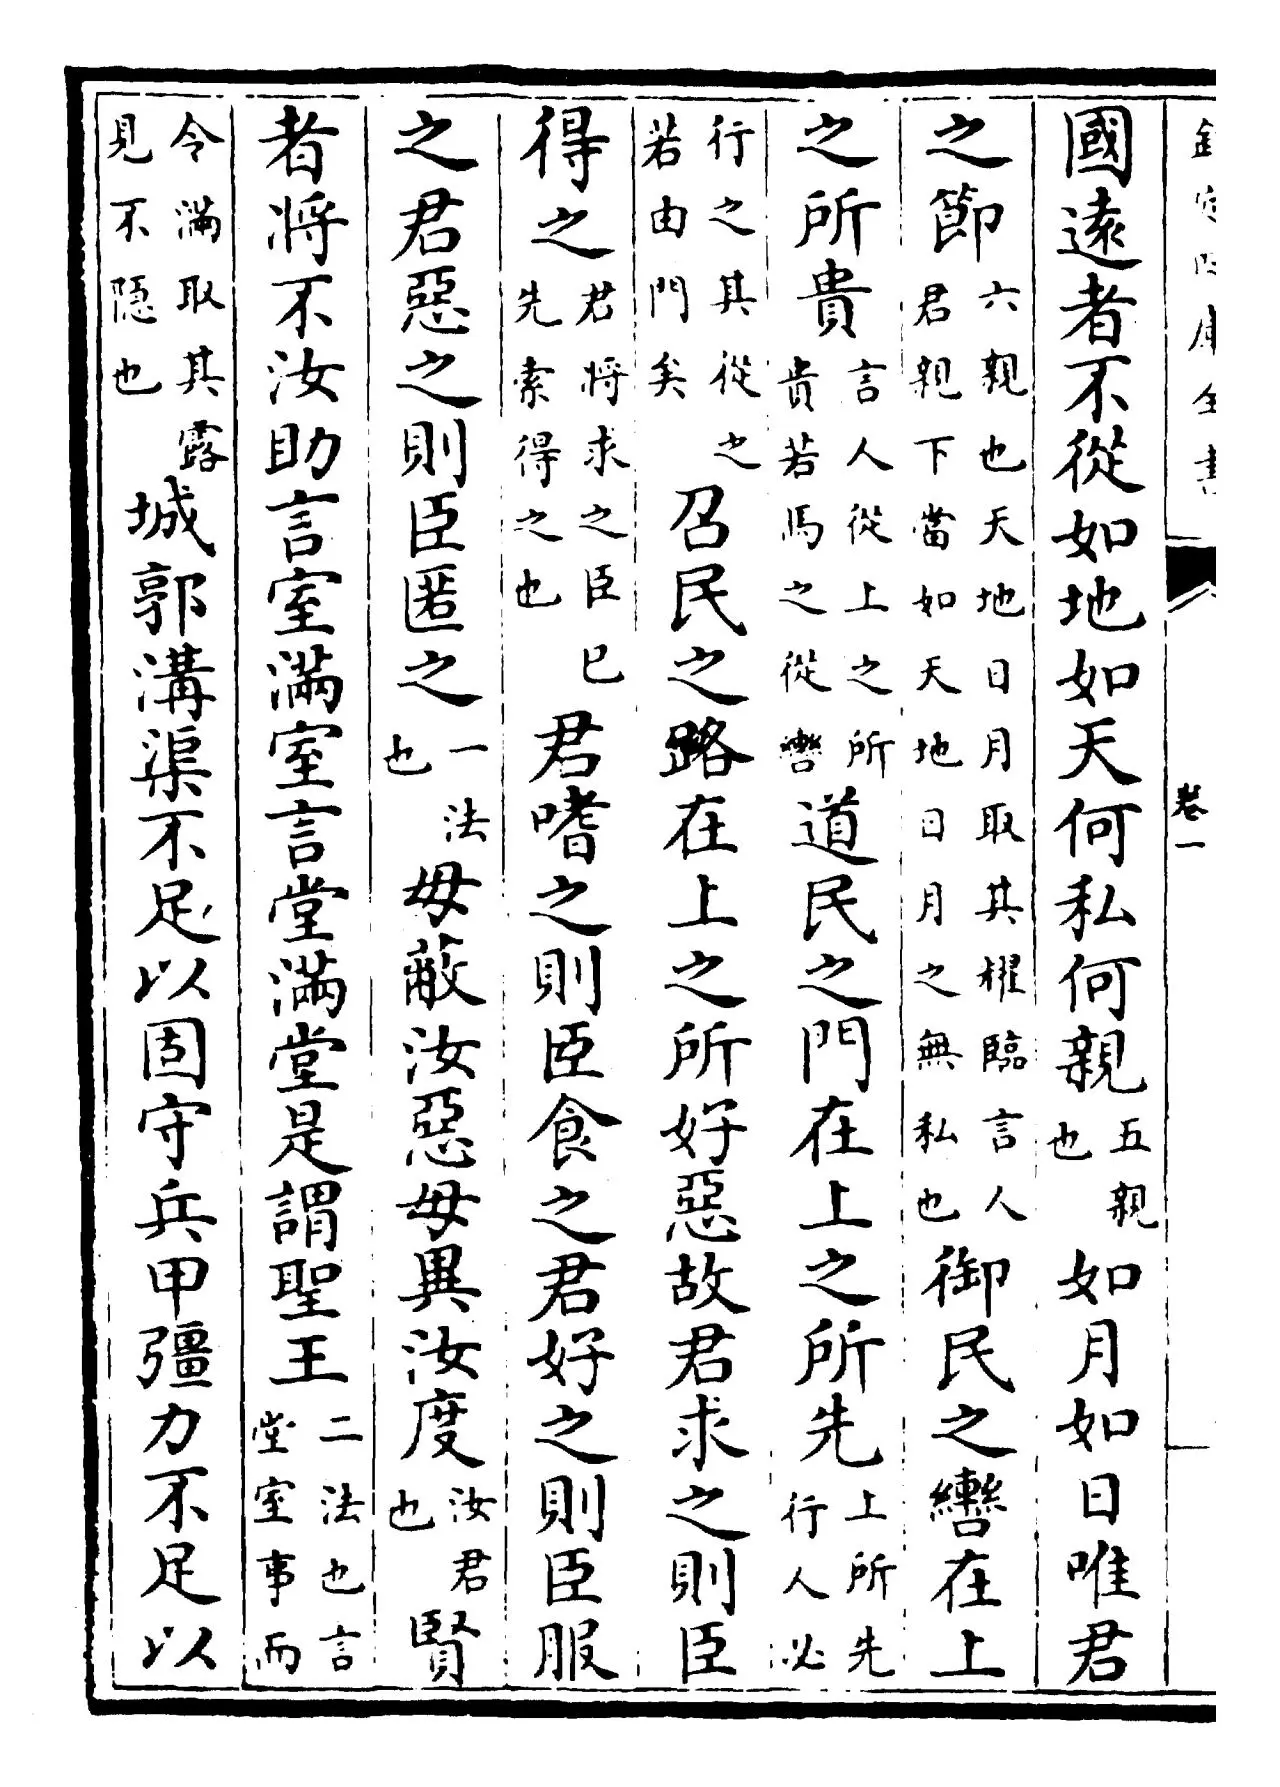 欽定四庫全書
卷一
國遠者不從如地如天何私何親五親也如月如日唯君
之節六親也天地日月取其耀臨言人君親下當如天地日月之無私也御民之轡在上
之所貴言人從上之所貴若馬之從轡道民之門在上之所先上所先行人必
行之其從之若由門矣召民之路在上之所好惡故君求之則臣
得之君將求之臣已先索得之也君嗜之則臣食之君好之則臣服
之君惡之則臣匿之一法也毋蔽汝惡毋異汝度汝君也賢
者將不汝助言室滿室言堂滿堂是謂聖王二法也言堂室事而
令滿取其露見不隠也城郭溝渠不足以固守兵甲彊力不足以